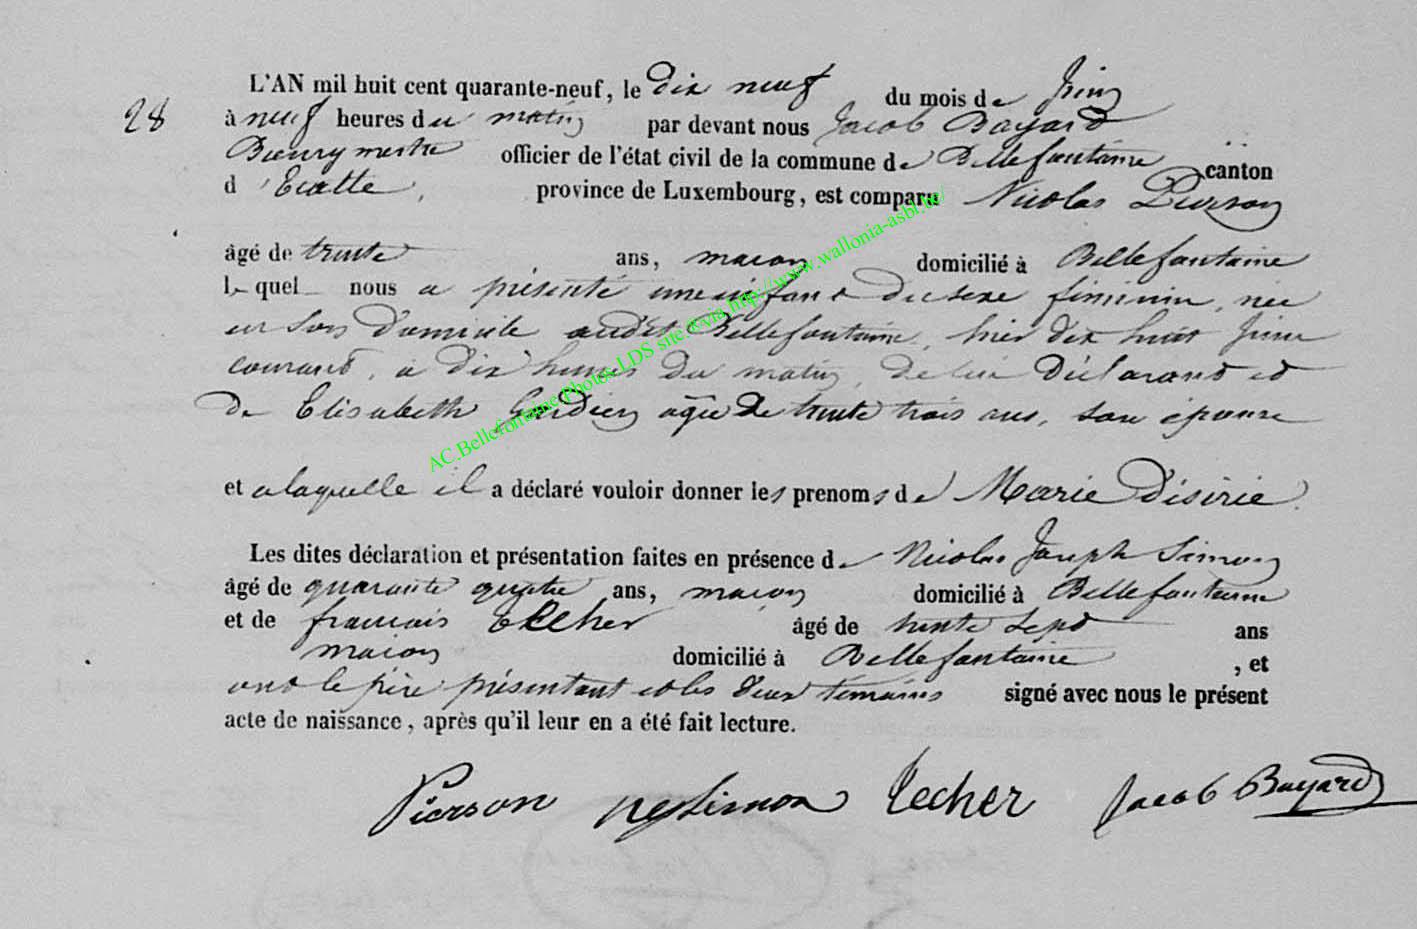 L'AN mil huit cent quarante-neuf, le dix neuf du mois de Juin
28 à neuf heures du matin par devant nous Jacob Bayard
Bourgmestre officier de l'état civil de la commune de Bellefontaine canton
d'Etalle, province de Luxembourg, est comparu Nicolas Pierson
âgé de trente ans, maçon domicilié à Bellefontaine
lequel nous a présenté une enfant du sexe féminin, née
en son domicile audit Bellefontaine, hier dix huit Juin
courant, à dix heures du matin, de lui déclarant et
de Elisabeth âgée de trente trois ans, son épouse
et a laquelle il a déclaré vouloir donner les prenoms de Marie Désirée.
Les dites déclaration et présentation faites en présence de Nicolas Joseph Simon
âgé de quarante quatre ans, maçon domicilié à Bellefontaine
et de francois Techer âgé de trente sept ans
maçon domicilié à Bellefontaine, et
ont le père présentant et les deux témoins signé avec nous le présent
acte de naissance, après qu'il leur en a été fait lecture.
Pierson Simon Techer Jacob Bayard
AC.Bellefontaine Photos LDS site.&via http://www.wallonia-asbl.be/